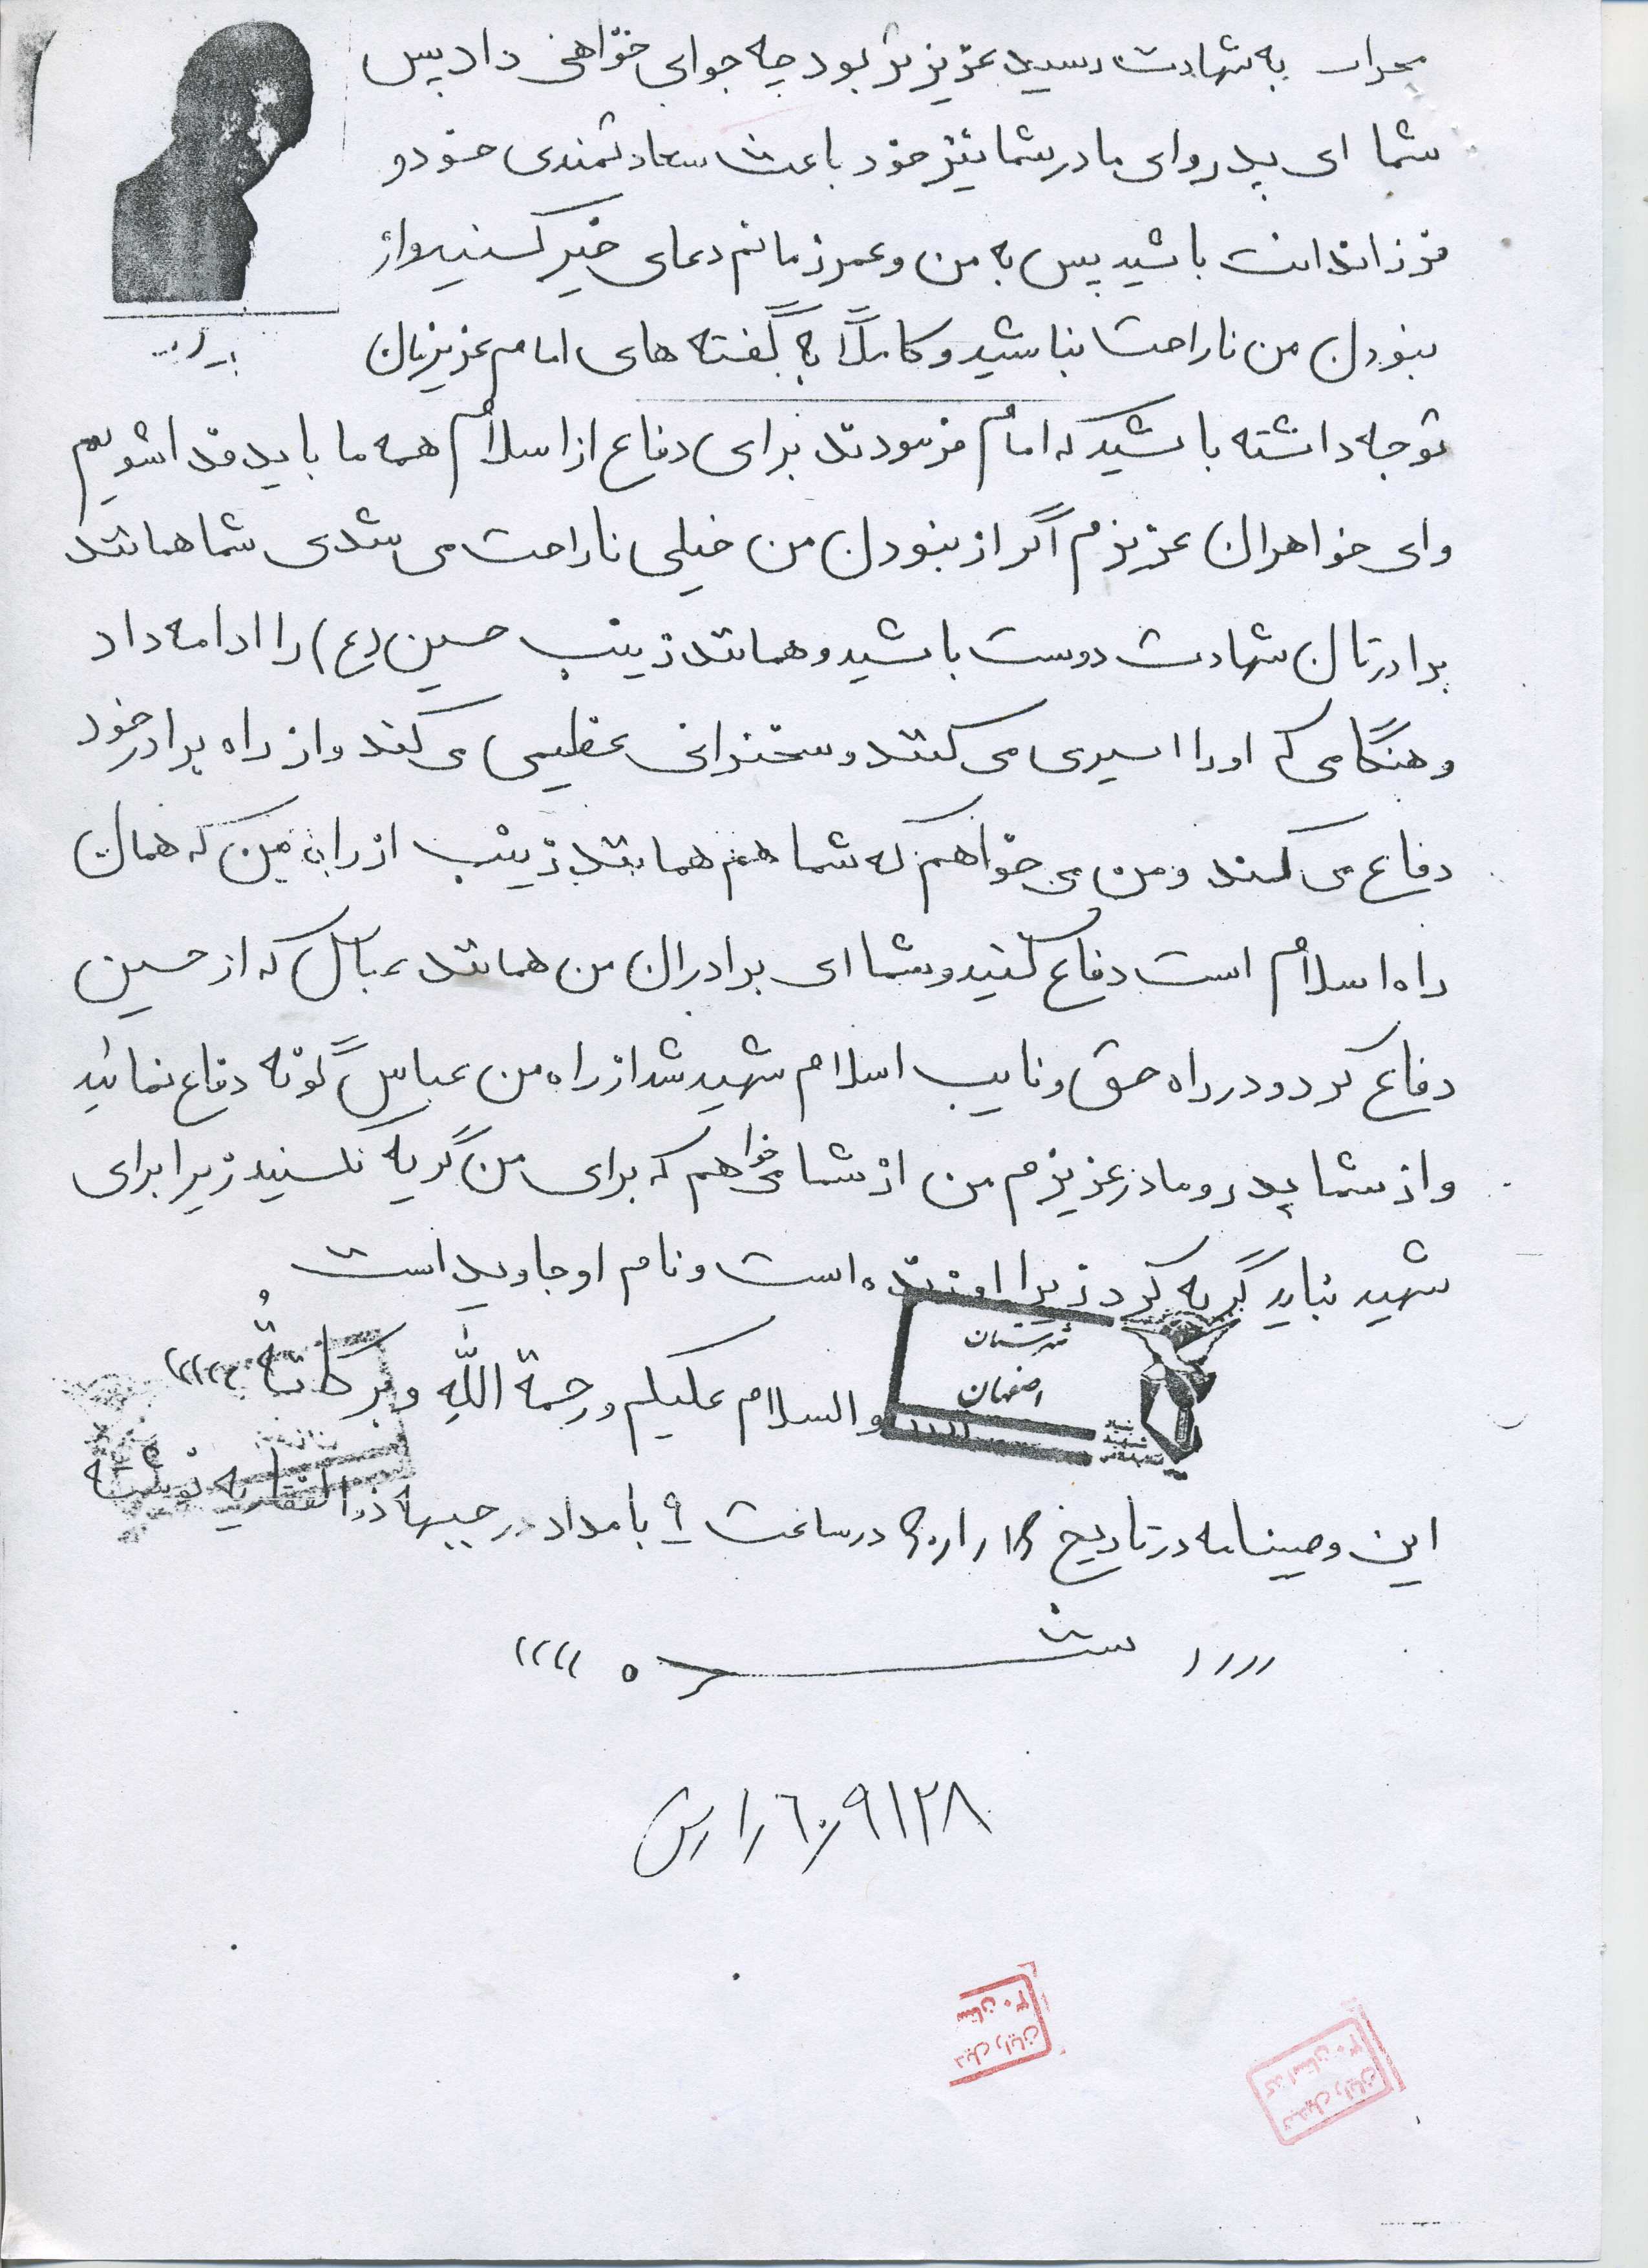 محراب به شهادت رسید عزیزتر بود چه جوابی خواهی داد پس
شما ای پدر و ای مادر شما نیز خود باعث سعادتمندی خود و
فرزندانت باشید پس به من و دعای خیر کنید و از
نبودن من ناراحت نباشید و کاملاً به گفته های امام عزیزمان
توجه داشته باشید که امام فرمودند برای دفاع از اسلام همه ما باید فدا شویم
و ای خواهران عزیزم اگر از نبودن من خیلی ناراحت می شدی شما همانند
برادرتان شهادت دوست باشید و همانند زینب حسین (ع) را ادامه داد
و هنگامی که او را اسیری می کنند و سخنرانی عظیمی می کند و از راه برادر خود
دفاع می کند و من می خواهم که شما هم همانند زینب از راه من که همان
راه اسلام است دفاع کنید و شما ای برادران من همانند عباس که از حسین
دفاع کرد و در راه حق و اسلام شهید شد از راه من عباس گونه دفاع نمائید
و از شما پدر و مادر عزیزم من از شما می خواهم که برای من گریه نکنید زیرا برای
شهید نباید گریه کرد زیرا او زنده است و نام او جاوید است
شهرستان
اصفهان
والسلام علیکم و رحمة اللّه و برکاتهُ
این وصیتنامه در تاریخ در ساعت ۹ بامداد در جبهه ذوالفقاریه نوشته
شده
۹۱۲۸